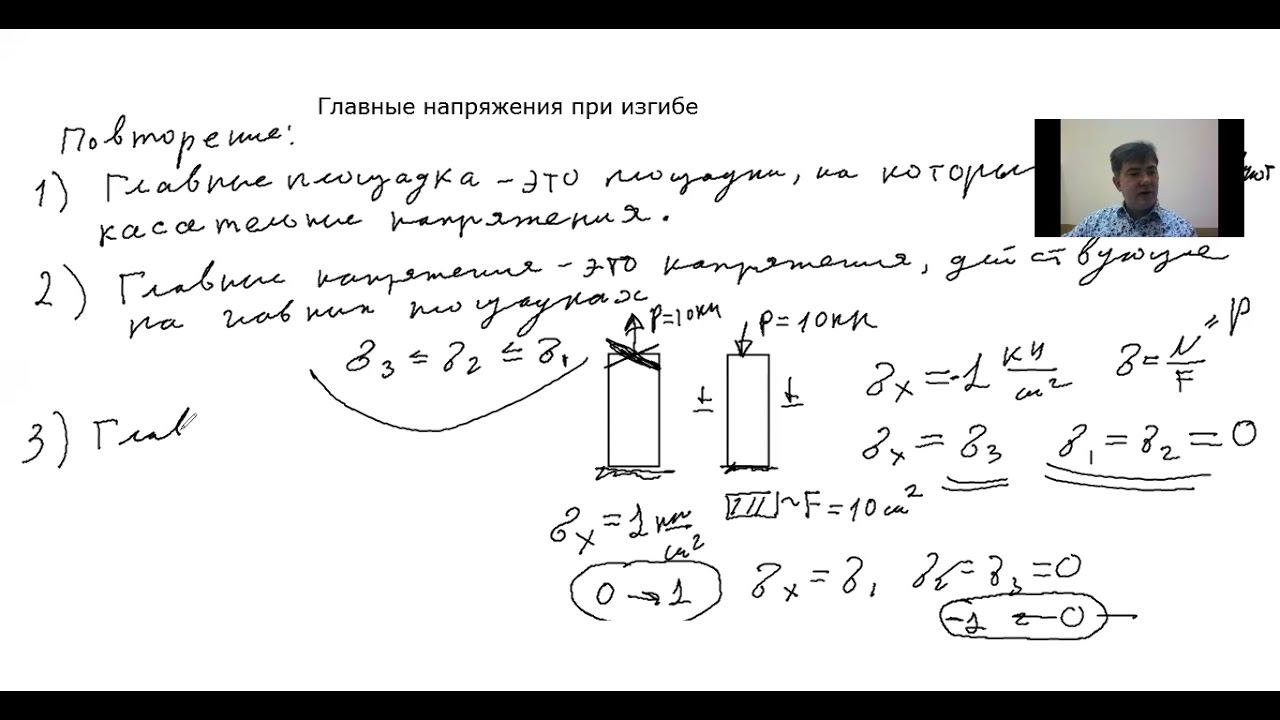 Главные напряжения при изгибе
Повторение:
1) Главные площадка - это площадки, на которы
касательные напряжения.
2) Главные напряжения - это напряжения, действующие
на главных площадках
σ₃ ≤ σ₂ ≤ σ₁
P=10кН
P=10кН
σₓ = -1 кН/см²
σ = N/F = P
σₓ = σ₃
σ₁ = σ₂ = 0
3) Глав
σₓ = 1 кН/см²
~F=10см²
0 → 1
σₓ = σ₁
σ₂ = σ₃ = 0
-1 ← 0